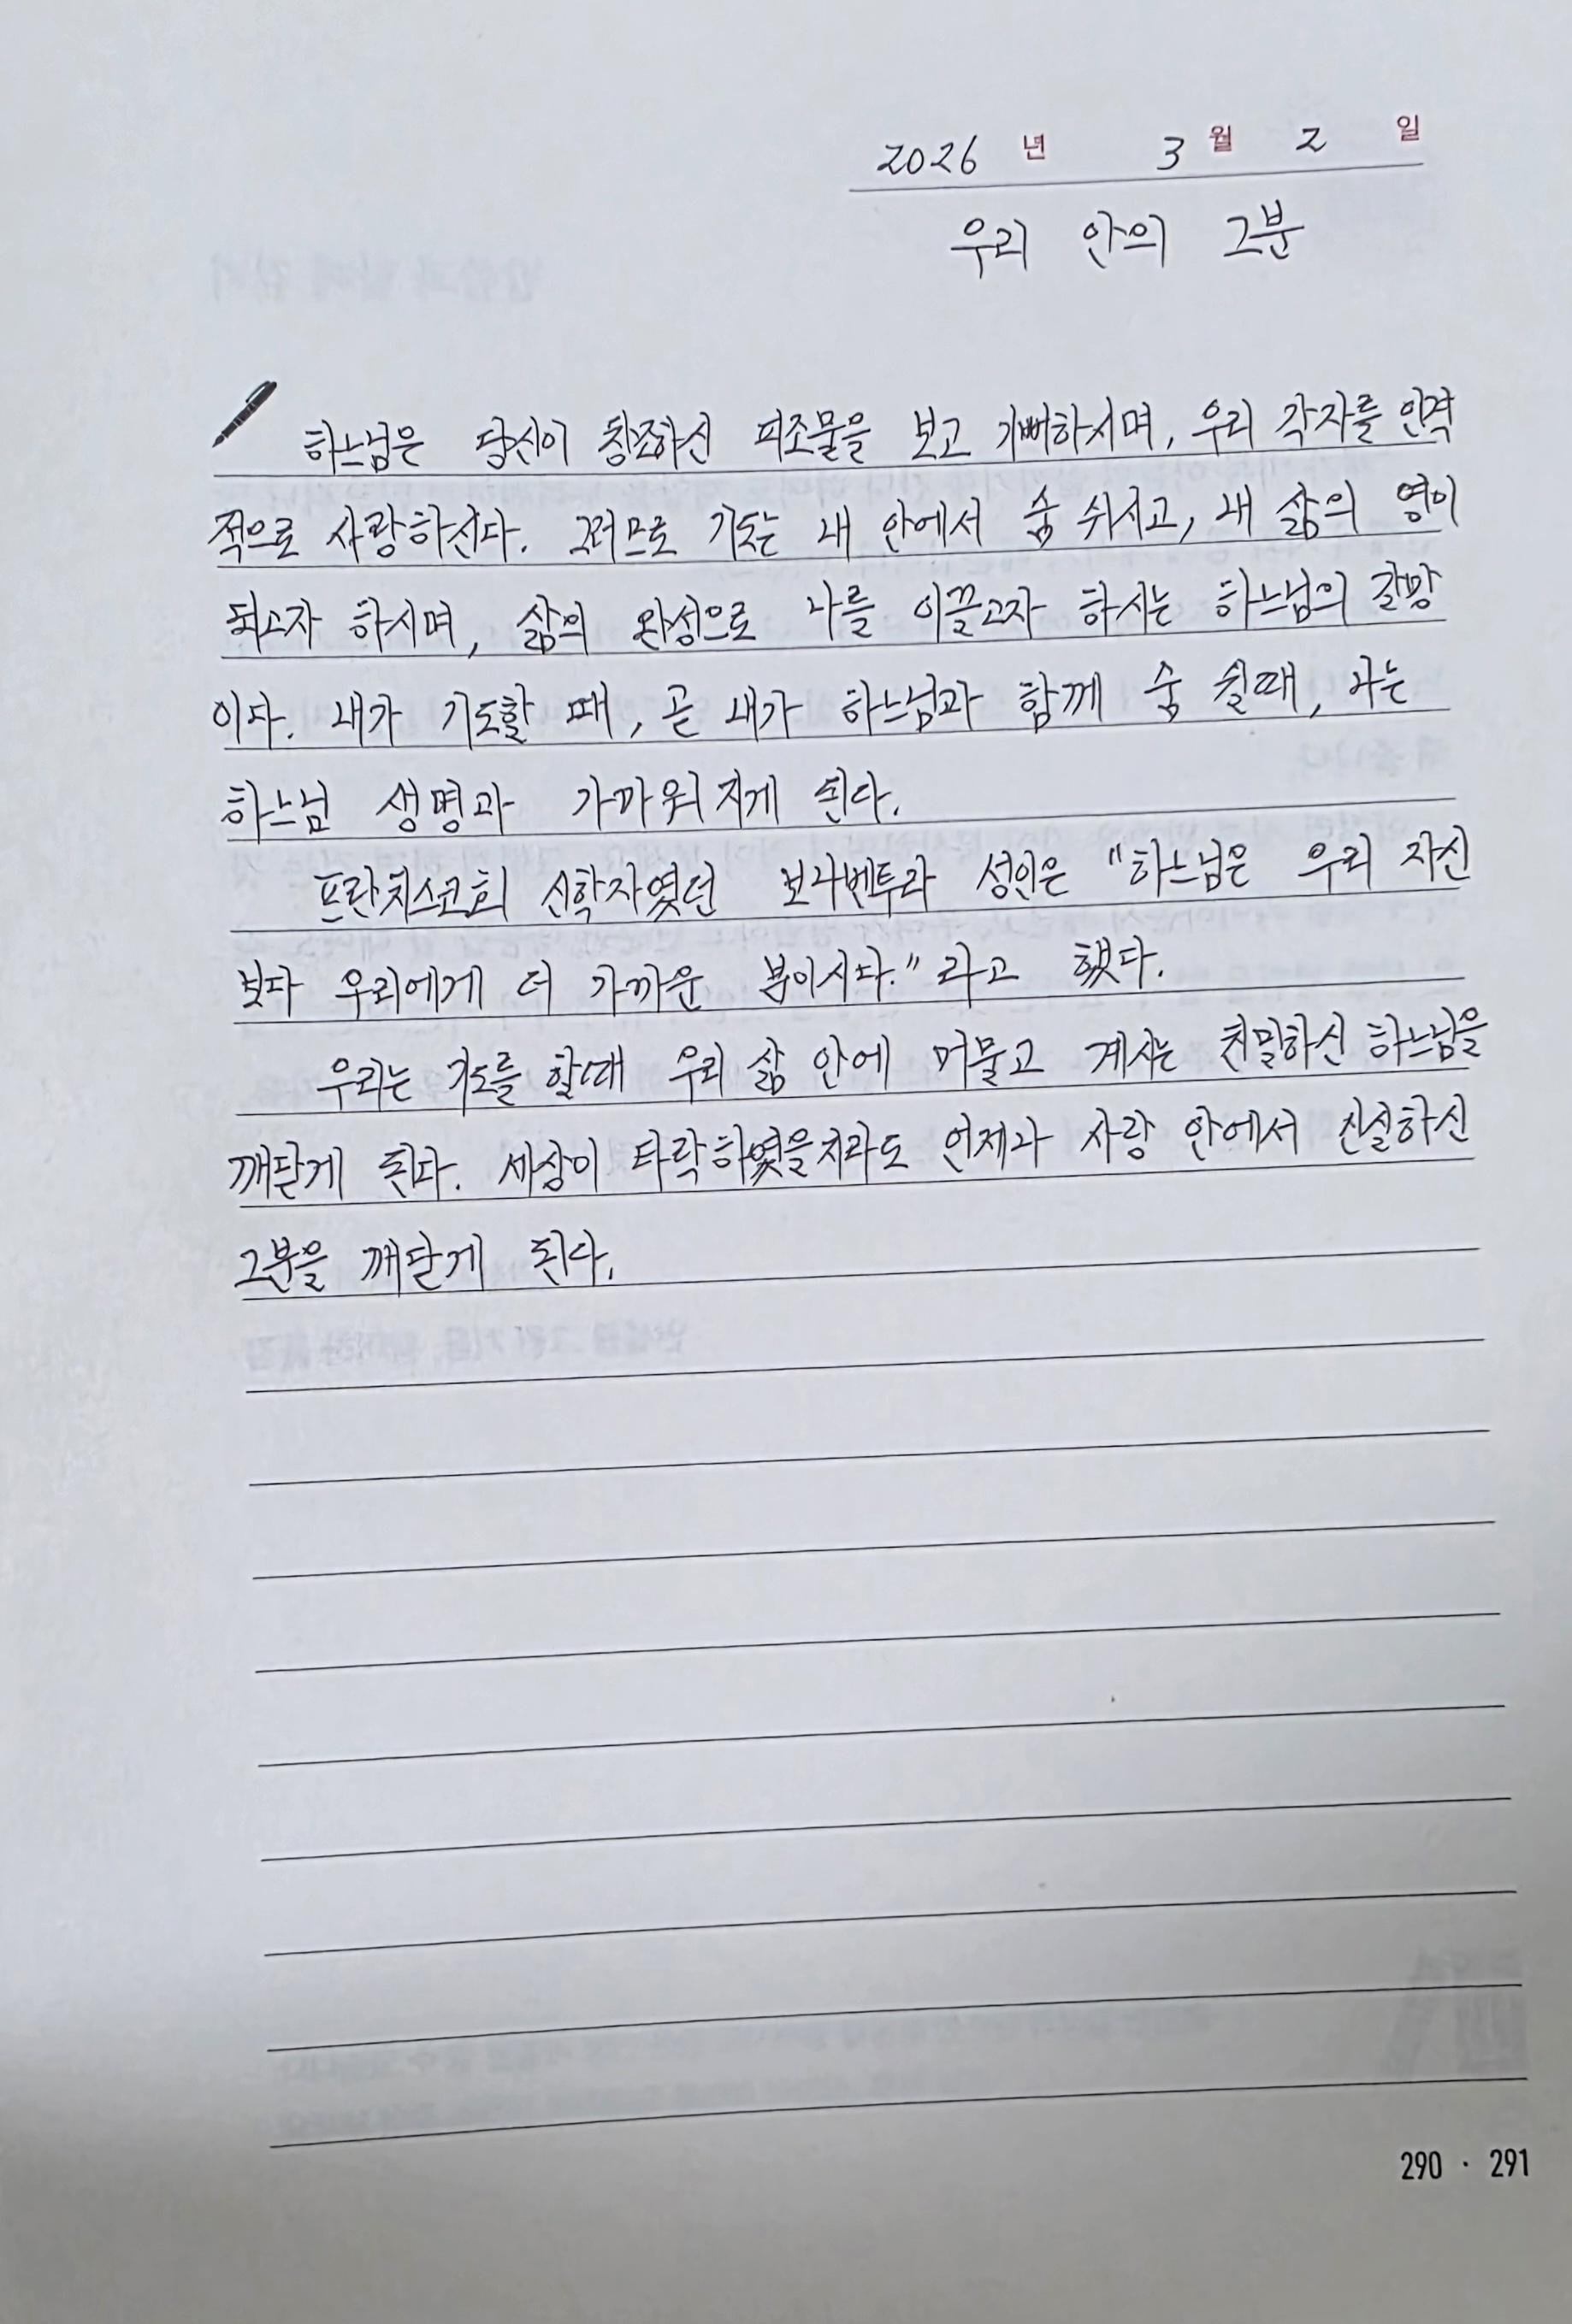 2026 년 3 월 2 일
우리 안의 그분
하느님은 당신이 창조하신 피조물을 보고 기뻐하시며, 우리 각자를 인격
적으로 사랑하신다. 그러므로 기도는 내 안에서 숨 쉬시고, 내 삶의 영이
되고자 하시며, 삶의 완성으로 나를 이끌고자 하시는 하느님의 갈망
이다. 내가 기도할 때, 곧 내가 하느님과 함께 숨 쉴때, 나는
하느님 생명과 가까워지게 된다.
프란치스코회 신학자였던 보나벤투라 성인은 "하느님은 우리 자신
보다 우리에게 더 가까운 분이시다." 라고 했다.
우리는 기도를 할때 우리 삶 안에 머물고 계시는 친밀하신 하느님을
깨닫게 된다. 세상이 타락하였을지라도 언제나 사랑 안에서 신실하신
그분을 깨닫게 된다.
290 · 291